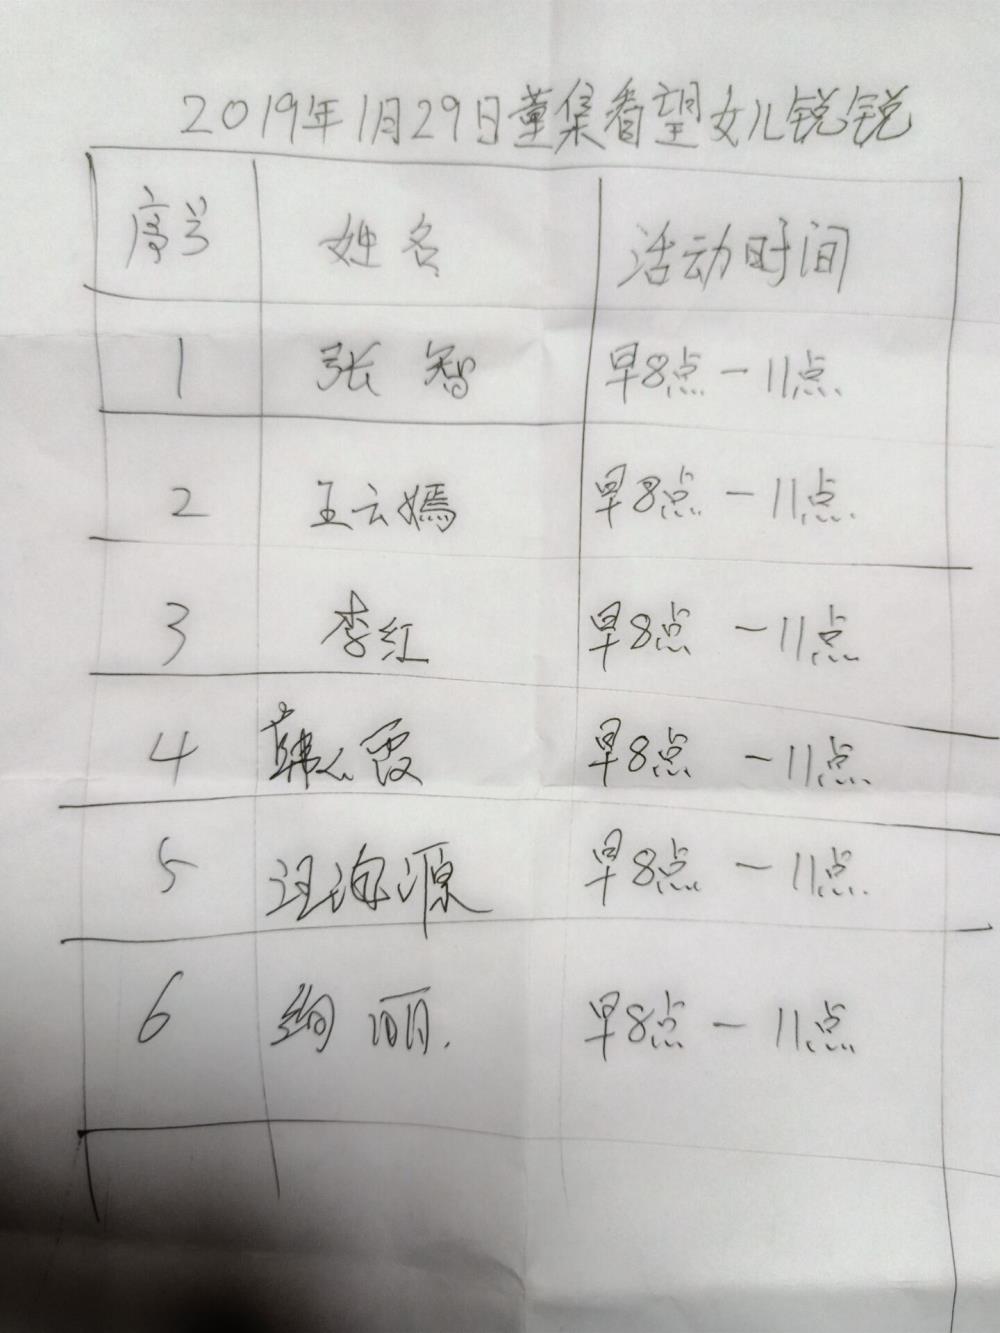 2019年1月29日董集看望女儿锐锐
序号 姓名 活动时间
1 张智 早8点－11点
2 王云嫣 早8点－11点
3 李红 早8点－11点
4 韩 霞 早8点－11点
5 汪 源 早8点－11点
6 绚丽. 早8点－11点